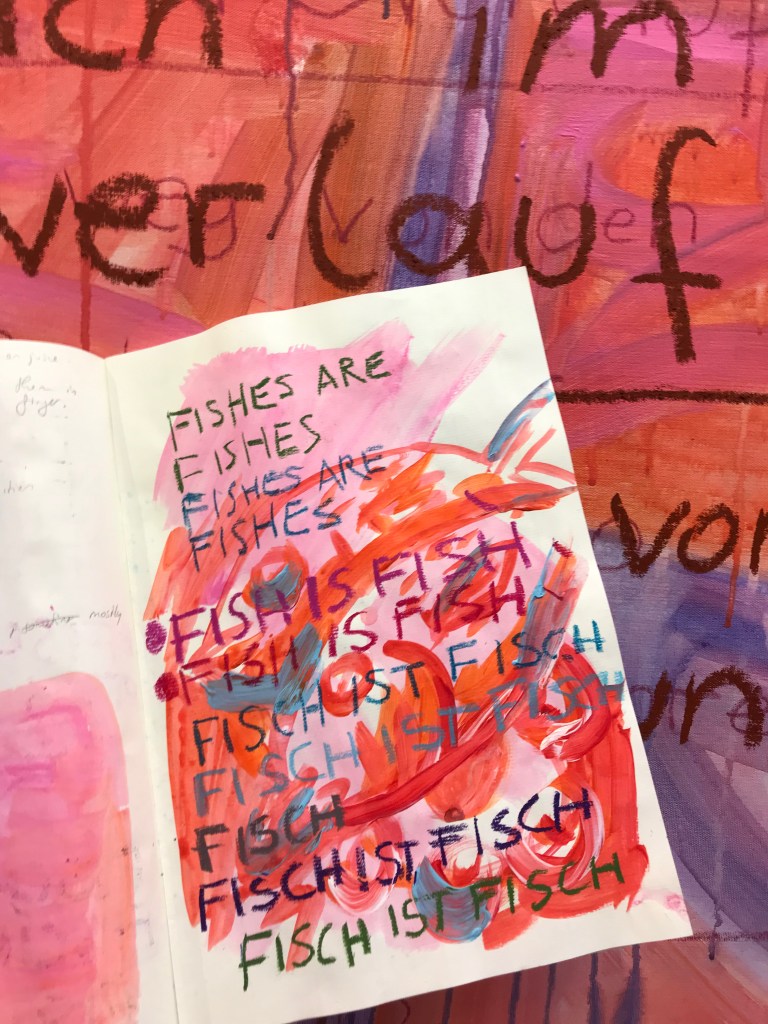 im
verlauf
gg von den
FISHES ARE
FISHES
FISHES ARE
FISHES
FISH IS FISH
FISH IS FISH
FISCH IST FISCH
FISCH IST FISCH
FISCH
FISCH IST FISCH
FISCH IST FISCH
mostly